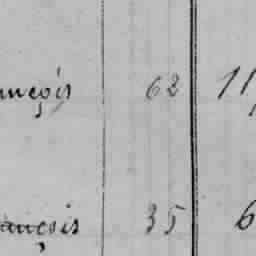 ançois 62 11
ançois 35 6